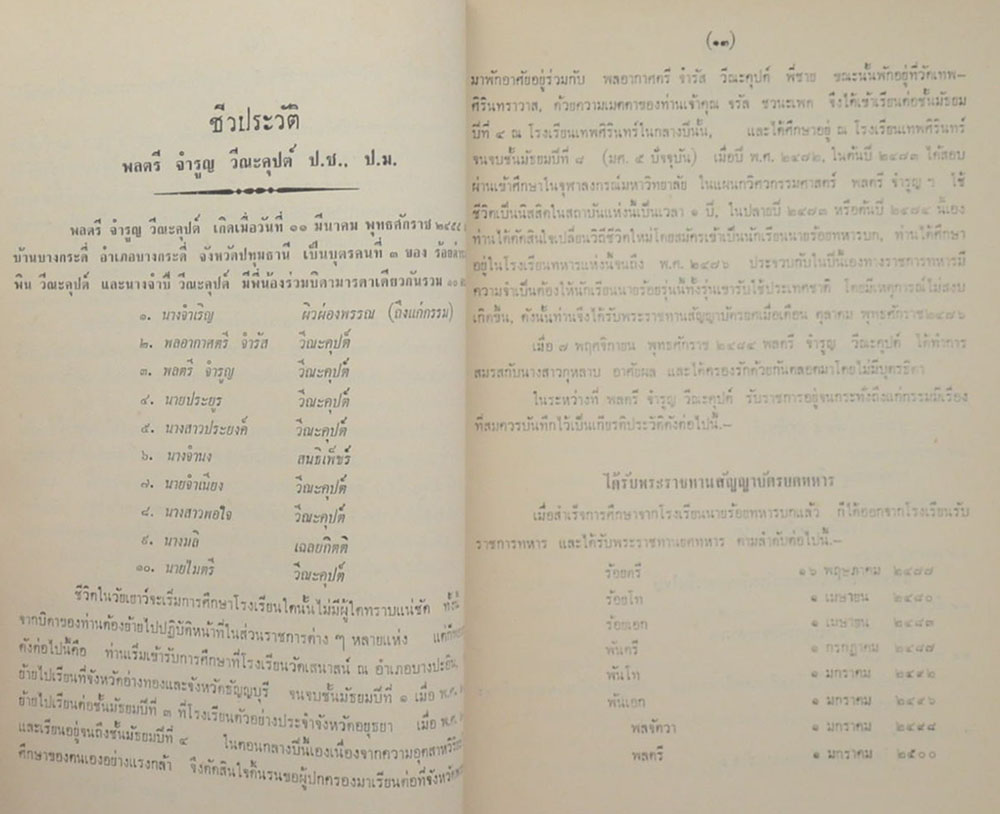 ชีวประวัติ
พลตรี จำรูญ วีณะคุปต์ ป.ช., ป.ม.
พลตรี จำรูญ วีณะคุปต์ เกิดเมื่อวันที่ ๑๑ มีนาคม พุทธศักราช
บ้านบางกระดี่ อำเภอบางกระดี่ จังหวัดปทุมธานี เป็นบุตรคนที่ ๓ ของ
พิน วีณะคุปต์ และนางจำปี วีณะคุปต์ มีพี่น้องร่วมบิดามารดาเดียวกันรวม ๑๐
๑. นางจำเริญ ผิวผ่องพรรณ (ถึงแก่กรรม)
๒. พลอากาศตรี จำรัส วีณะคุปต์
๓. พลตรี จำรูญ วีณะคุปต์
๔. นายประยูร วีณะคุปต์
๕. นางสาวประยงค์ วีณะคุปต์
๖. นางจำนง สนธิเพ็ชร์
๗. นายจำเนียง วีณะคุปต์
๘. นางสาวพอใจ วีณะคุปต์
๙. นางมลิ เฉลยกิตติ
๑๐. นายไมตรี วีณะคุปต์
ชีวิตในวัยเยาว์จะเริ่มการศึกษาโรงเรียนใดนั้นไม่มีผู้ใดทราบแน่ชัด
จากบิดาของท่านต้องย้ายไปปฏิบัติหน้าที่ในส่วนราชการต่าง ๆ หลายแห่ง
ดังต่อไปนี้คือ ท่านเริ่มเข้ารับการศึกษาที่โรงเรียนวัดเสนาสน์ ณ อำเภอบางปะอิน
ย้ายไปเรียนที่จังหวัดอ่างทองและจังหวัดธัญญบุรี จนจบชั้นมัธยมปีที่ ๑ เมื่อ พ.ศ.
ย้ายไปเรียนต่อชั้นมัธยมปีที่ ๓ ที่โรงเรียนตัวอย่างประจำจังหวัดอยุธยา เมื่อ พ.ศ.
และเรียนอยู่จนถึงชั้นมัธยมปีที่ ๔ ในตอนกลางปีนี้เองเนื่องจากความอุตสาหวิริยะ
ศึกษาของตนเองอย่างแรงกล้า จึงตัดสินใจดิ้นรนขอผู้ปกครองมาเรียนต่อที่จังหวัด
(๑๓)
มาพักอาศัยอยู่ร่วมกับ พลอากาศตรี จำรัส วีณะคุปต์ พี่ชาย ขณะนั้นพักอยู่ที่วัดเทพ–
ศิรินทราวาส, ด้วยความเมตตาของท่านเจ้าคุณ จรัส ชวนะเพต จึงได้เข้าเรียนต่อชั้นมัธยม
ปีที่ ๔ ณ โรงเรียนเทพศิรินทร์ในกลางปีนั้น, และได้ศึกษาอยู่ ณ โรงเรียนเทพศิรินทร์
จนจบชั้นมัธยมปีที่ ๘ (มศ. ๕ ปัจจุบัน) เมื่อปี พ.ศ. ๒๔๗๒, ในต้นปี ๒๔๗๓ ได้สอบ
ผ่านเข้าศึกษาในจุฬาลงกรณ์มหาวิทยาลัย ในแผนกวิศวกรรมศาสตร์ พลตรี จำรูญ ฯ ใช้
ชีวิตเป็นนิสิตในสถาบันแห่งนี้เป็นเวลา ๑ ปี, ในปลายปี ๒๔๗๓ หรือต้นปี ๒๔๗๔ นี้เอง
ท่านได้ตัดสินใจเปลี่ยนวิถีชีวิตใหม่โดยสมัครเข้าเป็นนักเรียนนายร้อยทหารบก, ท่านได้ศึกษา
อยู่ในโรงเรียนทหารแห่งนี้จนถึง พ.ศ. ๒๔๗๖ ประจวบกับในปีนี้เองทางราชการทหารมี
ความจำเป็นต้องให้นักเรียนนายร้อยรุ่นนี้ทั้งรุ่นเข้ารับใช้ประเทศชาติ โดยมีเหตุการณ์ไม่สงบ
เกิดขึ้น, ดังนั้นท่านจึงได้รับพระราชทานสัญญาบัตรยศเมื่อเดือน ตุลาคม พุทธศักราช๒๔๗๖
เมื่อ ๗ พฤศจิกายน พุทธศักราช ๒๔๘๔ พลตรี จำรูญ วีณะคุปต์ ได้ทำการ
สมรสกับนางสาวกุหลาบ อาศัยผล และได้ครองรักด้วยกันตลอดมาโดยไม่มีบุตรธิดา
ในระหว่างที่ พลตรี จำรูญ วีณะคุปต์ รับราชการอยู่จนกระทั่งถึงแก่กรรมมีเรื่อง
ที่สมควรบันทึกไว้เป็นเกียรติประวัติดังต่อไปนี้.–
ได้รับพระราชทานสัญญาบัตรยศทหาร
เมื่อสำเร็จการศึกษาจากโรงเรียนนายร้อยทหารบกแล้ว ก็ได้ออกจากโรงเรียนรับ
ราชการทหาร และได้รับพระราชทานยศทหาร ตามลำดับต่อไปนี้.–
ร้อยตรี ๑๖ พฤษภาคม ๒๔๗๗
ร้อยโท ๑ เมษายน ๒๔๘๐
ร้อยเอก ๑ เมษายน ๒๔๘๓
พันตรี ๑ กรกฎาคม ๒๔๘๗
พันโท ๑ มกราคม ๒๔๙๒
พันเอก ๑ มกราคม ๒๔๙๖
พลจัตวา ๑ มกราคม ๒๔๙๘
พลตรี ๑ มกราคม ๒๕๐๐